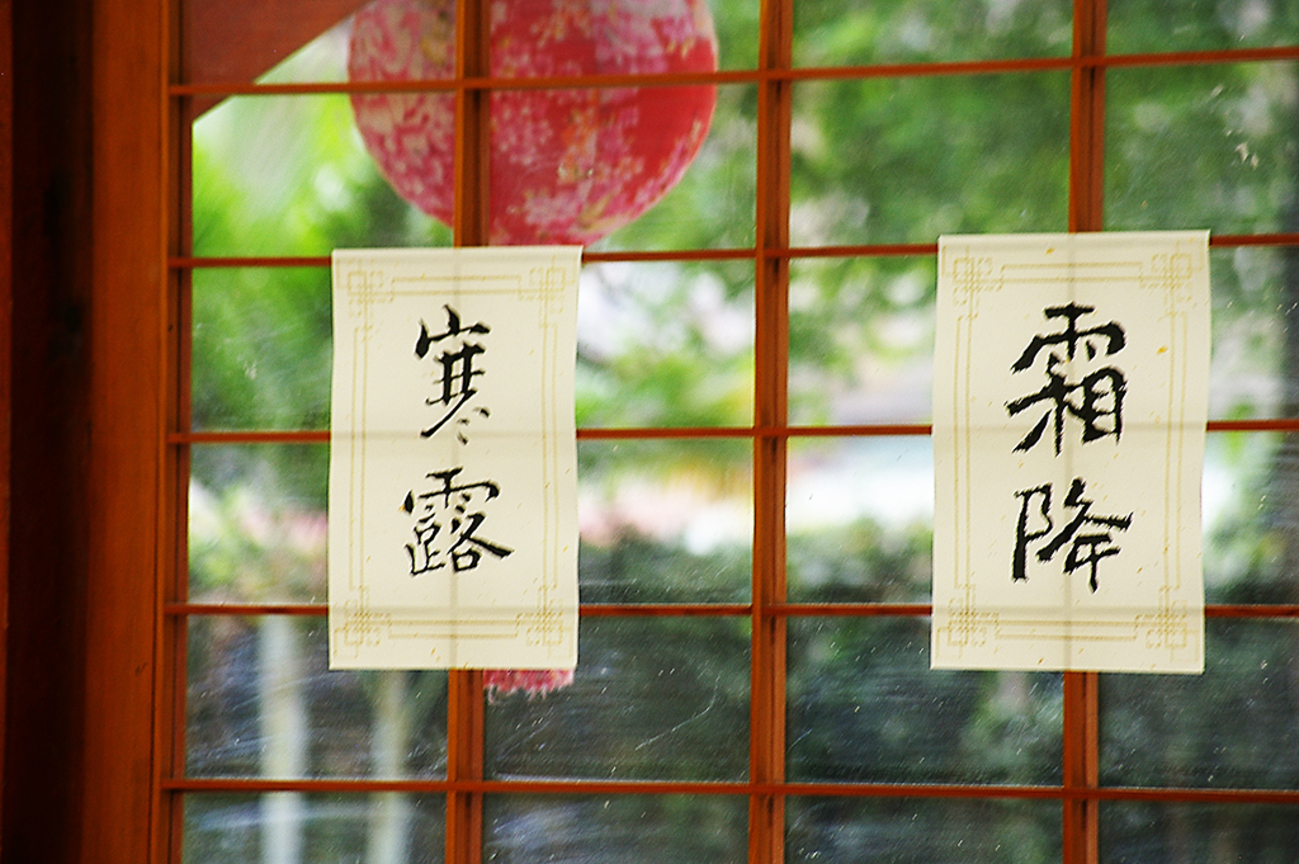 寒露
霜降